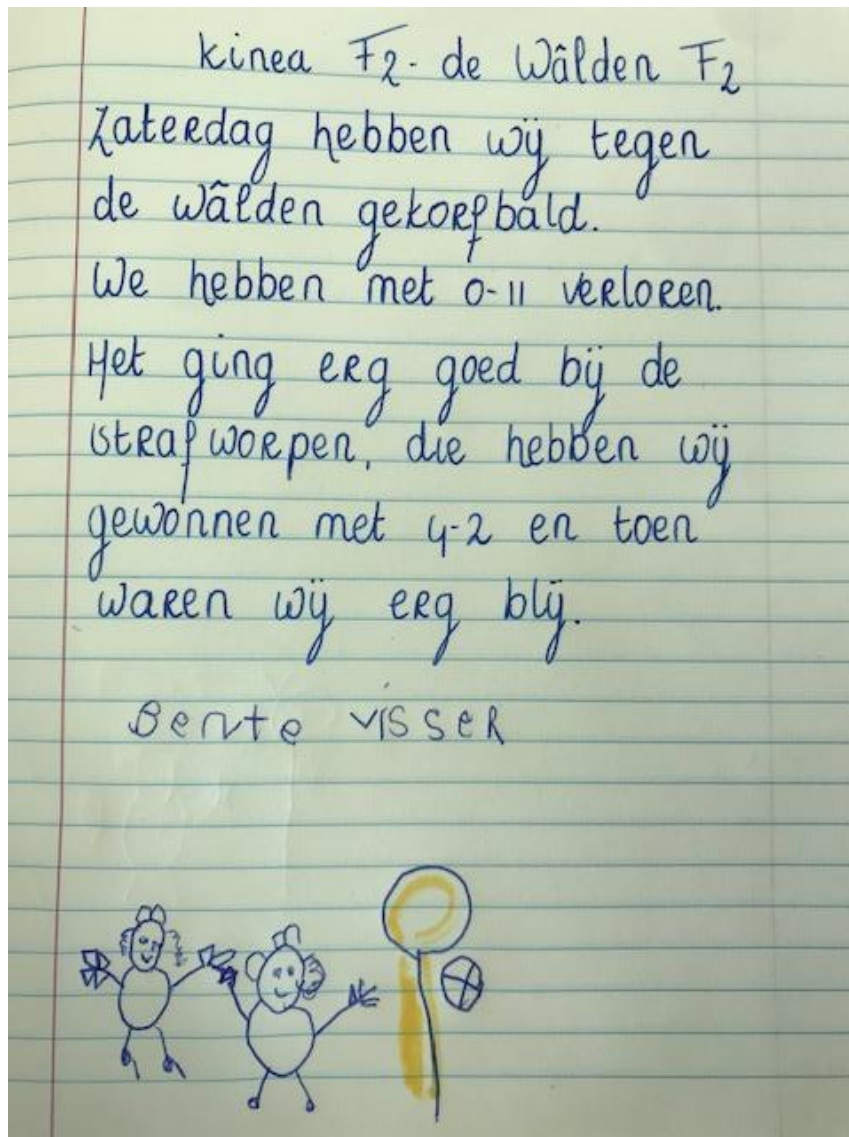 Kinea F2 - de Wâlden F2
Zaterdag hebben wij tegen
de wâlden gekorfbald.
We hebben met 0-11 verloren.
Het ging erg goed bij de
strafworpen, die hebben wij
gewonnen met 4-2 en toen
waren wij erg blij.
Bente Visser